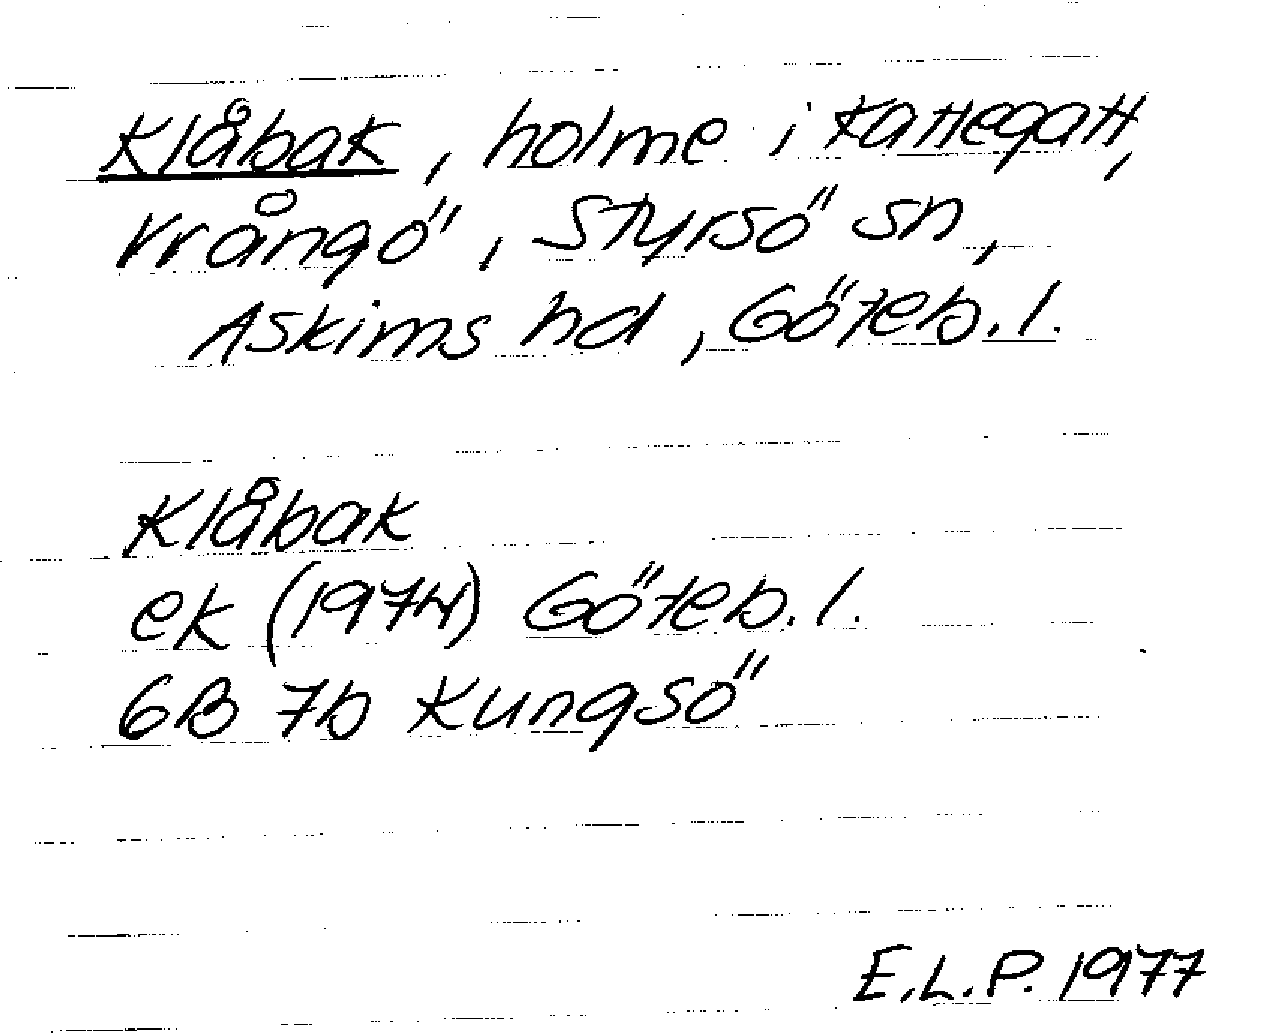 Klåbak, holme i Kattegatt,
Vrångö, Styrsö sn,
Askims hd, Göteb. l.
Klåbak
ek (1974) Göteb. l.
6B 7b Kungsö
E.L.P. 1977